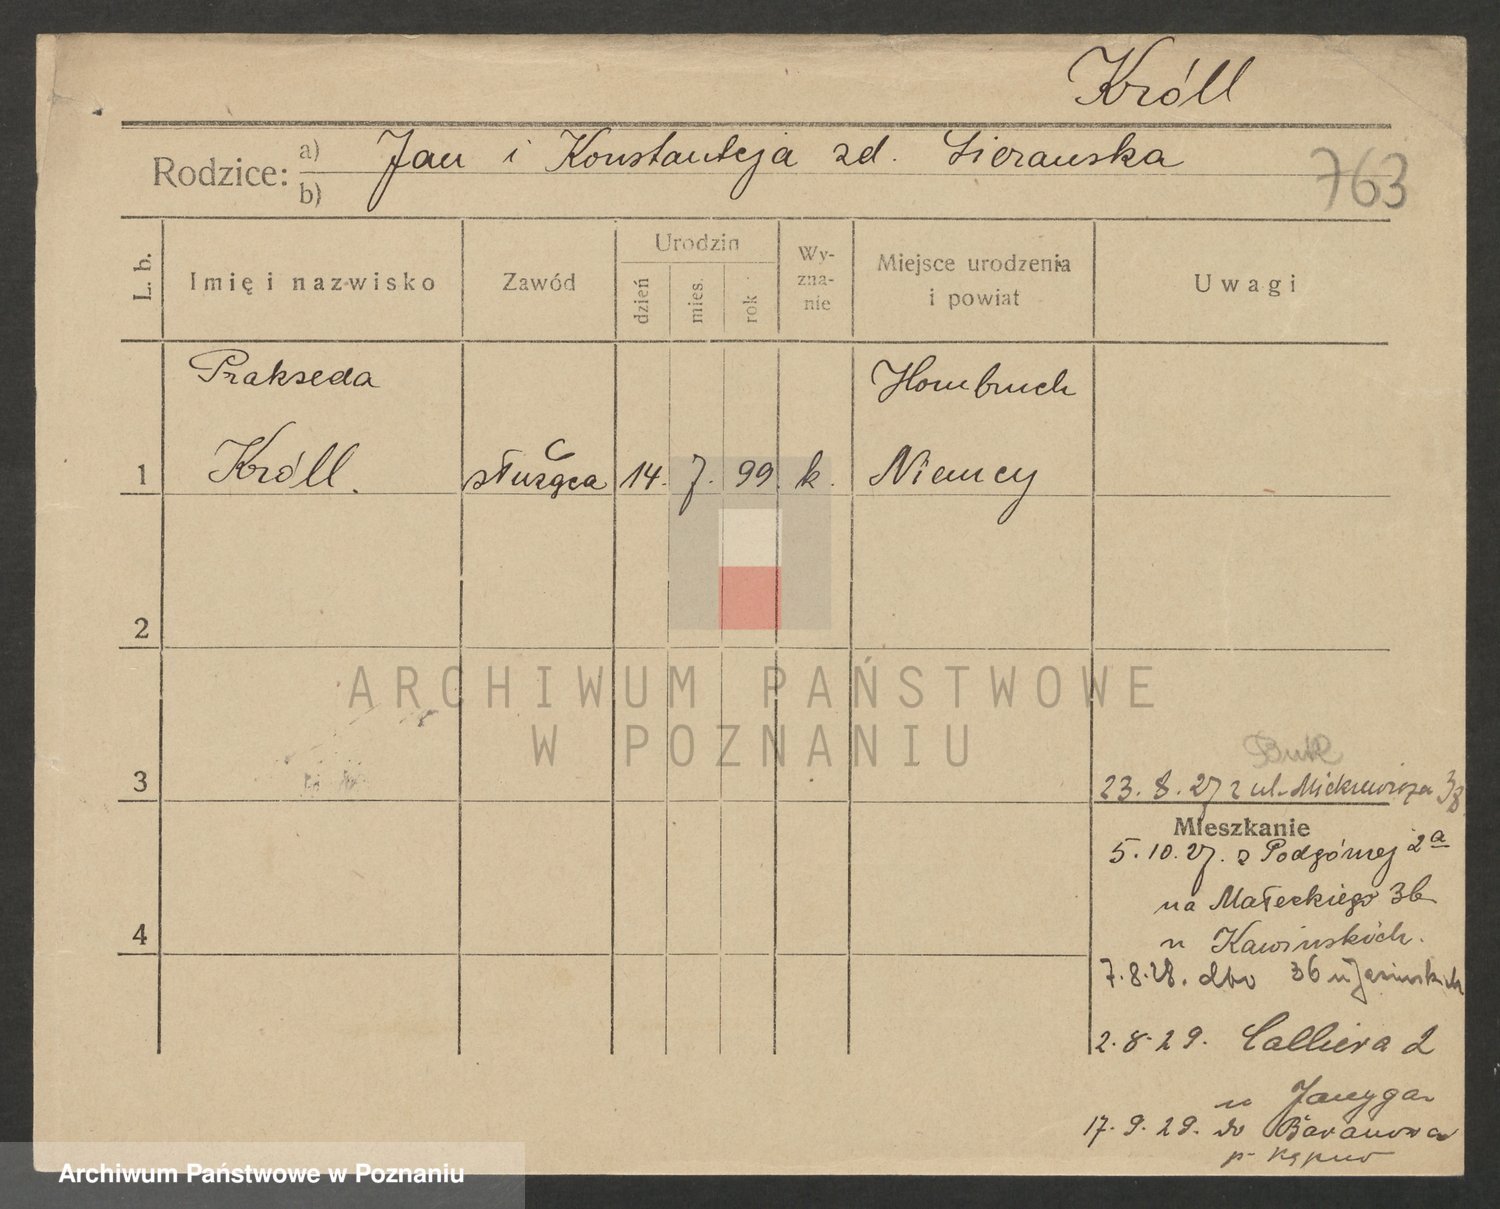 Króll
Rodzice: a) Jan i Konstantcja zd. Sieranska
b)
763
L. b.
Imię i nazwisko
Zawód
Urodzin
dzień
mies.
rok
Wy-
zna-
nie
Miejsce urodzenia
i powiat
Uwagi
Prakseda
Hombruch
1 Króll. służąca 14. 7. 99. k. Niemcy
2
ARCHIWUM PAŃSTWOWE
W POZNANIU
Buk
3
23. 8. 27 z ul. Mickiewicza 38
Mieszkanie
5. 10. 27. z Podgórnej 2a
na Małeckiego 36
4
u Kawinskich.
7. 8. 28. dto 36 u Jasinskich
2. 8. 29. Calliera 2
u Janyga
17. 9. 29. do Baranowa
p. Kępno
Archiwum Państwowe w Poznaniu